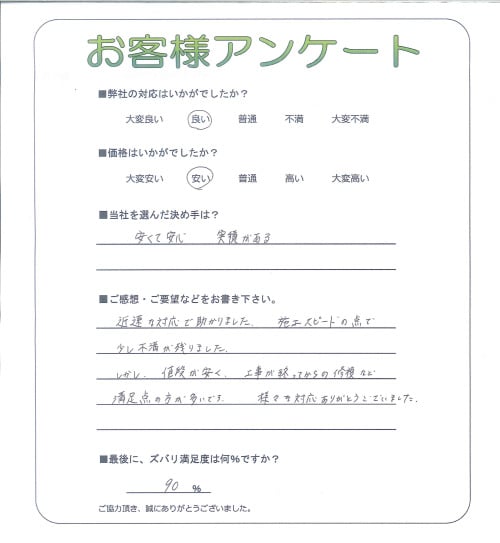 お客様アンケート
■弊社の対応はいかがでしたか？
大変良い 良い 普通 不満 大変不満
■価格はいかがでしたか？
大変安い 安い 普通 高い 大変高い
■当社を選んだ決め手は？
安くて安心 実績がある
■ご感想・ご要望などをお書き下さい。
迅速の対応で助かりました. 施工スピードの点で
少し不満が残りました.
しかし、値段が安く、工事が終ってからの修複など
満足点の方が多いです. 様々な対応ありがとうございました.
■最後に、ズバリ満足度は何％ですか？
90 ％
ご協力頂き、誠にありがとうございました。